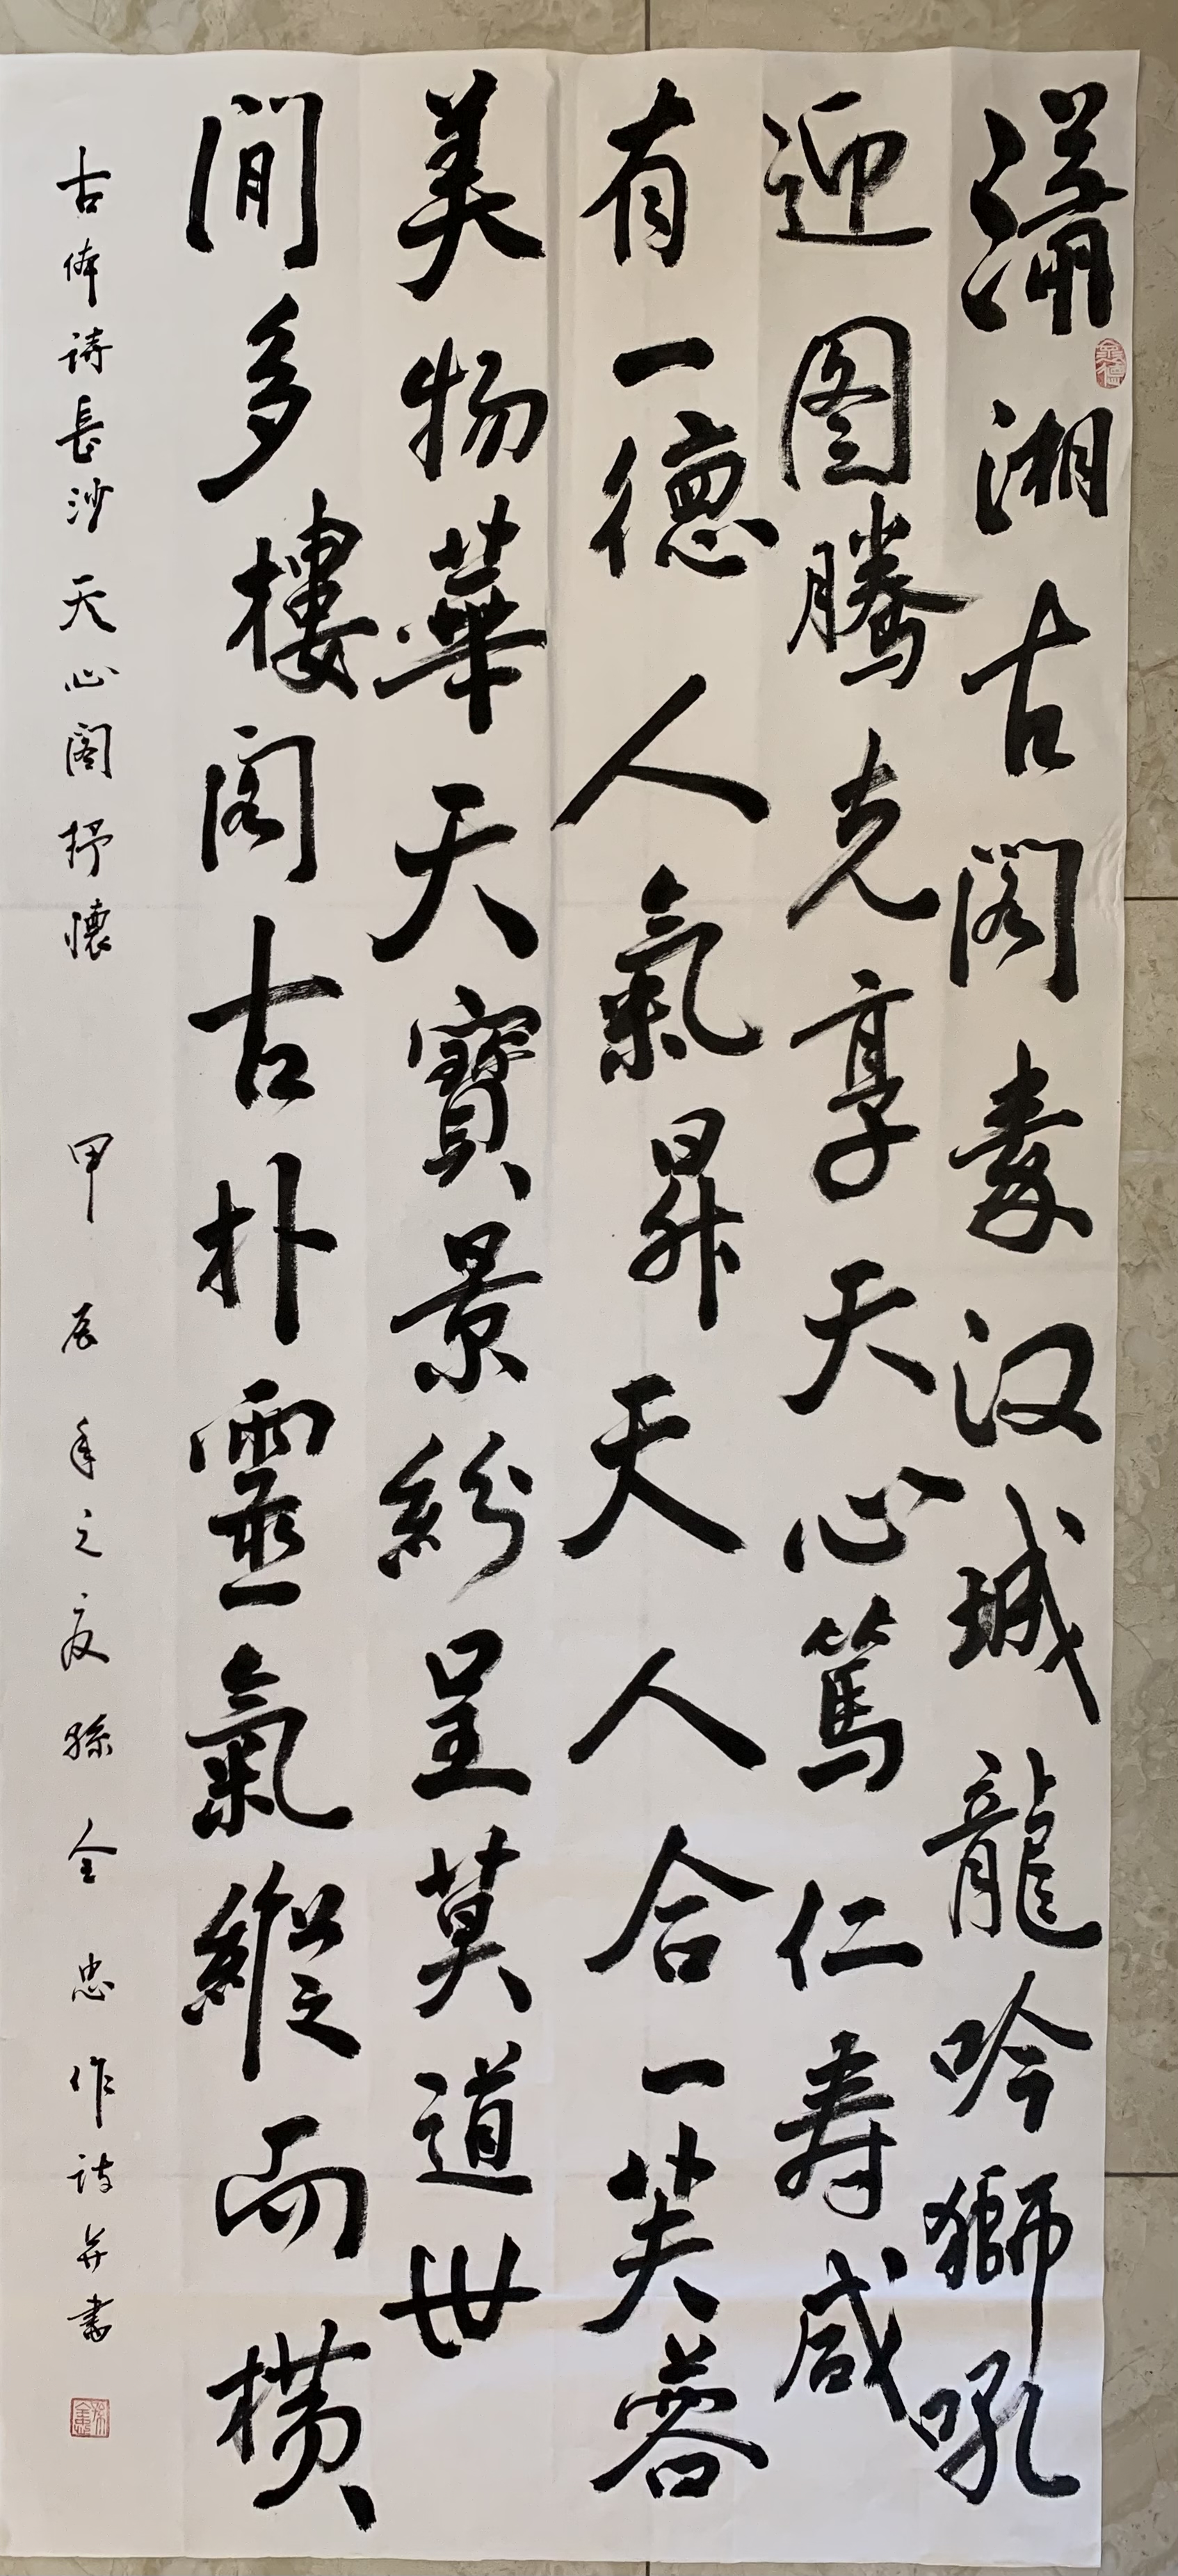 瀟湘古阁汉城龍吟獅吼
迎图腾光享天心篤仁寿咸
有一德人氣昇天天人合一芙蓉
美物華天寶景紛呈莫道世
间多樓阁古朴靈氣縱而横
古体诗長沙天心阁抒懷 甲辰年之夏孫全忠作诗并書